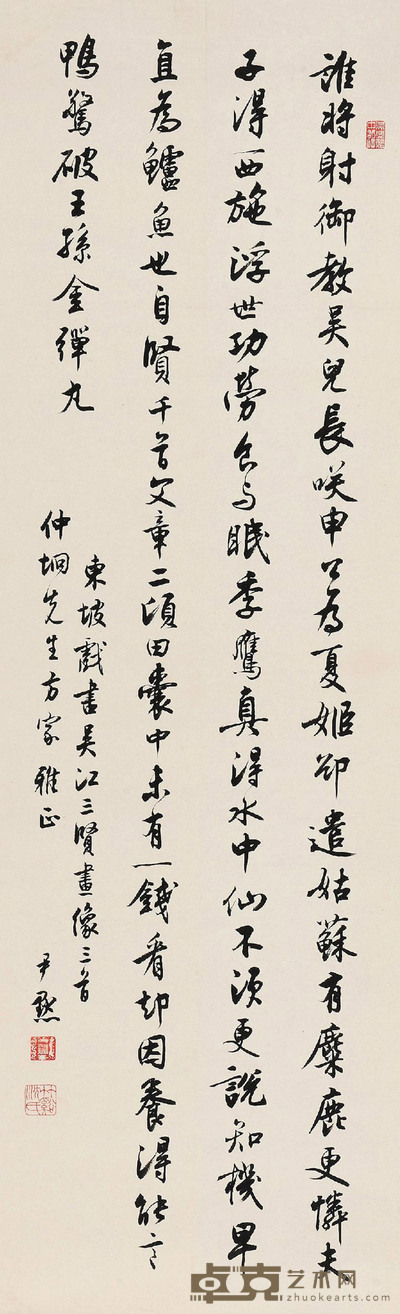 誰將射御教吳兒長咲申公為夏姬却遣姑蘇有麋鹿更憐夫
子得西施浮世功勞食與眠季鷹真得水中仙不須更說知機早
直為鱸魚也自賢千首文章二頃田囊中未有一錢看却因養得能言
鴨驚破王孫金彈丸
東坡戲書吳江三賢畫像三首
仲坰先生方家雅正
尹默
卓克艺术网
zhuokearts.com